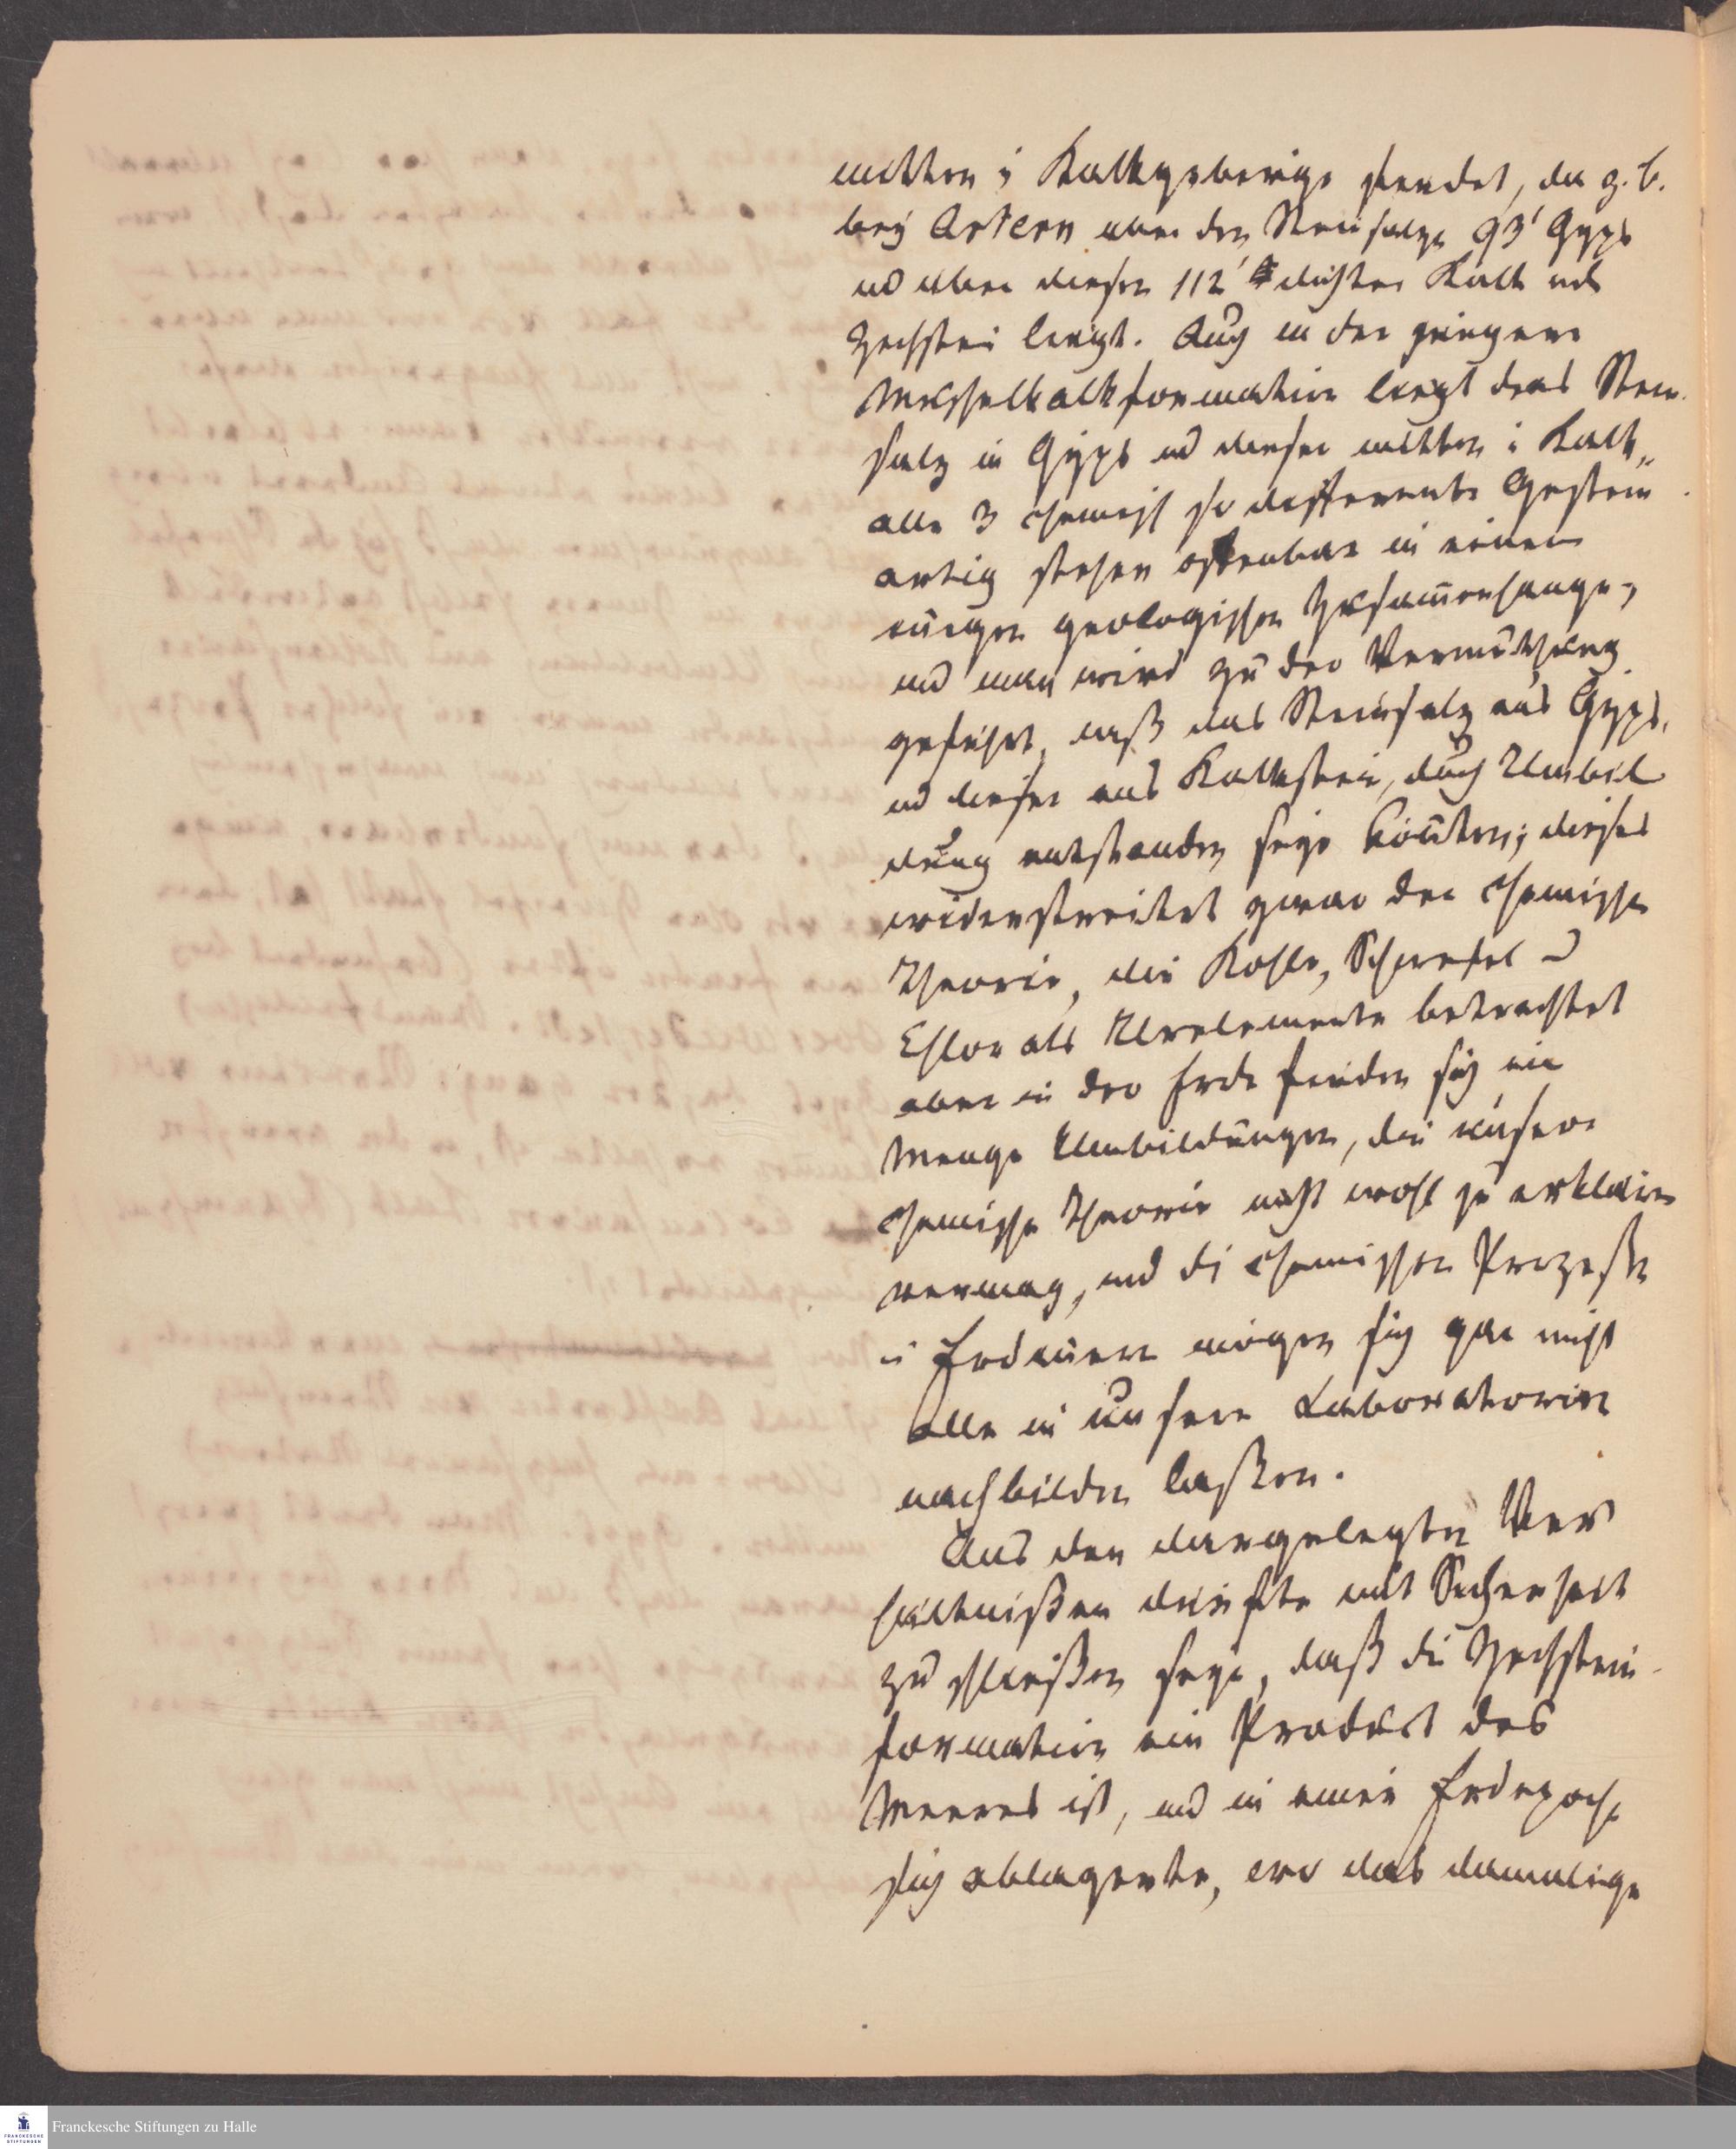 mitten i Kalkgebirge findet, da z. b.
bey Artern uber den Steinsalze 93' Gyps
ud uber diesen 112' dichter Kalk ud
Zechstein liegt. Auch in der jüngern
Muschelkalkformation liegt das Stein
salz in Gyps ud dieser mitten i Kalk„
alle 3 chemisch so differente Gestein
artig stehen offenbar in einem
einigen geologischen Zusam̄enhange,
und man wird zu der Vermuthung
geführt, daß das Steinsalz aus Gyps,
ud dieser aus Kalkstein, durch Umbil
dung entstanden seyn kön̄ten; dieses
widerstreitet zwar der chemische
Theorie, die Kohle, Schwefel u
Chlor als Urelemente betrachtet
aber in der Erde finden sich eine
Menge Umbildungen, die unsere
chemische Theorie nicht wohl zu erklären
vermag, und di chemischen Prozeße
i Erdin̄ern mögen sich gar nicht
alle in unsern Laboratorien
nachbilden laßen.
Aus den dargelegten Ver
hältnißen dürfte mit Sicherheit
zu schließen seyn, daß die Zechstein
formation ein Product des
Meeres ist, und in einer Erdepoche
sich ablagerte, wo das damalige
Franckesche Stiftungen zu Halle
FRANCKESCHE
STIFTUNGEN